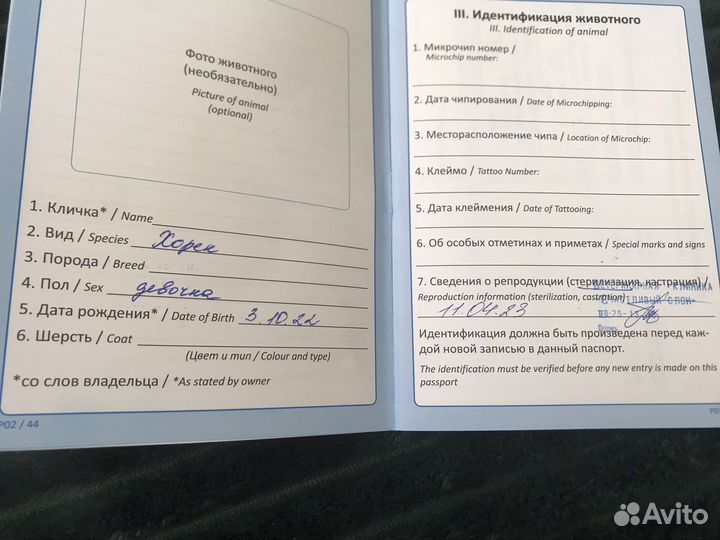 Фото животного
(необязательно)
Picture of animal
(optional)
1. Кличка* / Name
2. Вид / Species Хорек
3. Порода / Breed
4. Пол / Sex девочка
5. Дата рождения* / Date of Birth 3.10.22
6. Шерсть / Coat
(Цвет и тип / Colour and type)
*со слов владельца / *As stated by owner
P02 / 44
III. Идентификация животного
III. Identification of animal
1. Микрочип номер /
Microchip number:
2. Дата чипирования / Date of Microchipping:
3. Месторасположение чипа / Location of Microchip:
4. Клеймо / Tattoo Number:
5. Дата клеймения / Date of Tattooing:
6. Об особых отметинах и приметах / Special marks and signs
7. Сведения о репродукции (стерилизация, кастрация) /
Reproduction information (sterilization, castration)
ВЕТЕРИНАРНАЯ КЛИНИКА
СЛОН
11.04.23
Идентификация должна быть произведена перед каж-
дой новой записью в данный паспорт.
The identification must be verified before any new entry is made on this
passport
Avito